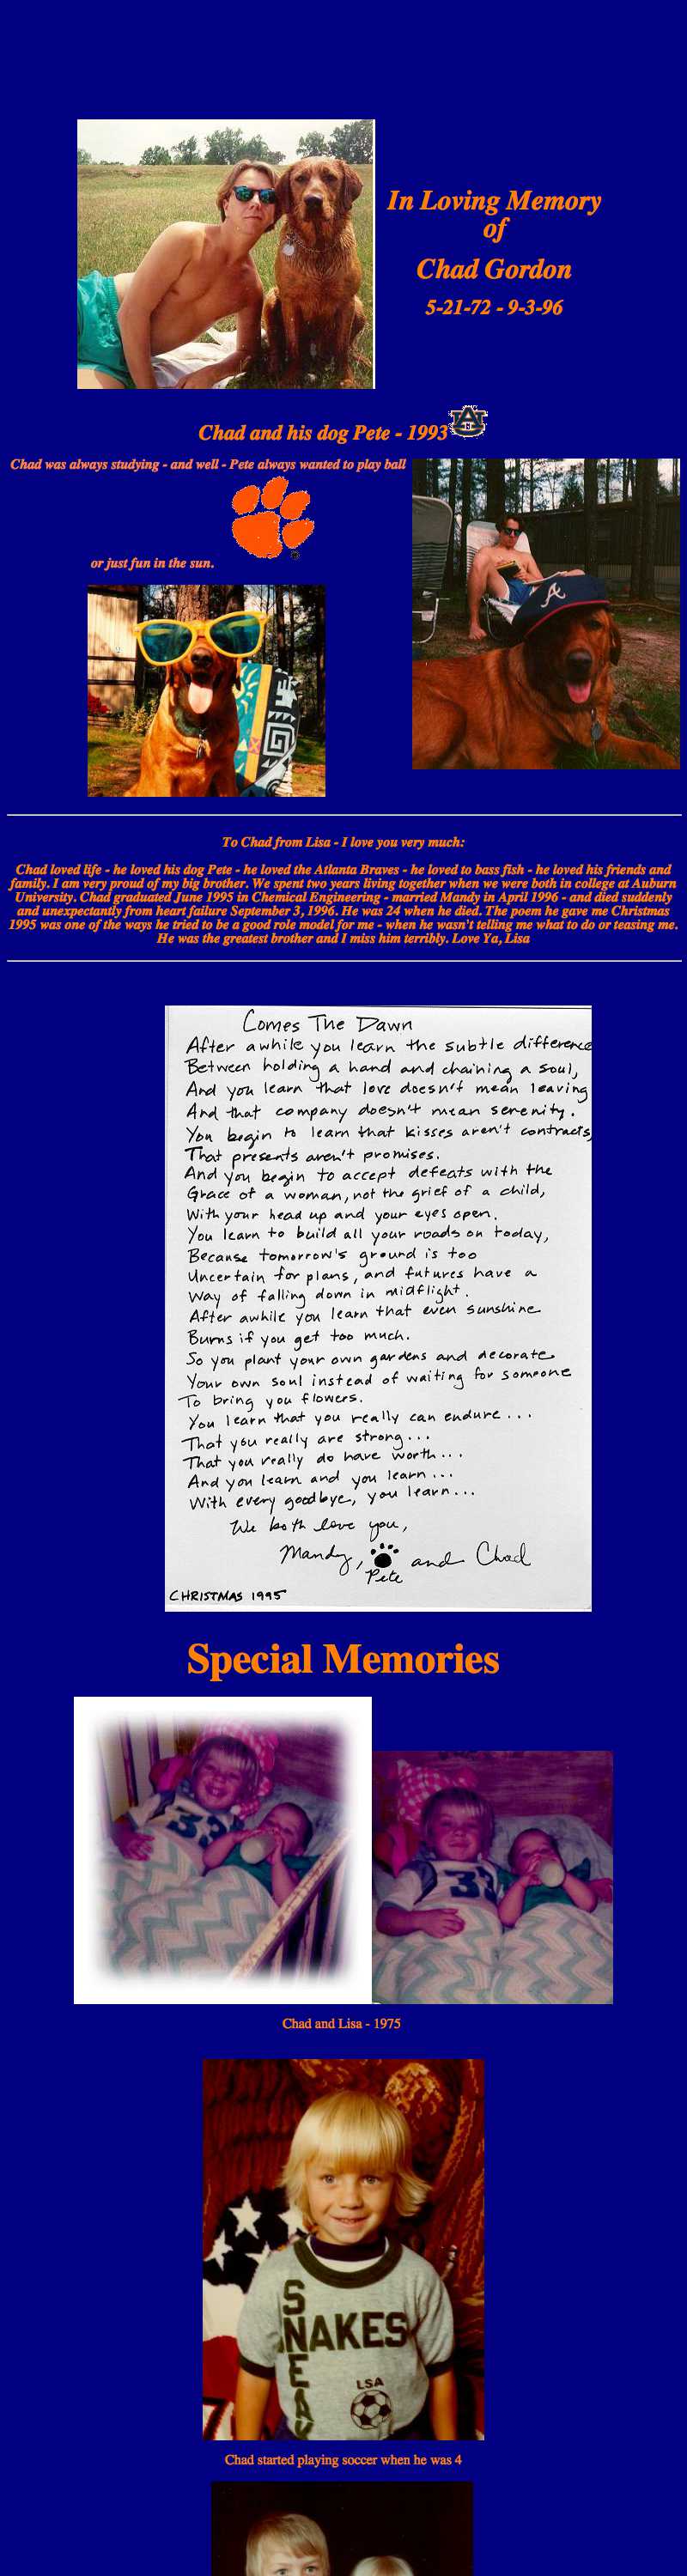 In Loving Memory
of
Chad Gordon
5-21-72 - 9-3-96
Chad and his dog Pete - 1993
AU
Chad was always studying - and well - Pete always wanted to play ball
or just fun in the sun.
A
To Chad from Lisa - I love you very much:
Chad loved life - he loved his dog Pete - he loved the Atlanta Braves - he loved to bass fish - he loved his friends and
family. I am very proud of my big brother. We spent two years living together when we were both in college at Auburn
University. Chad graduated June 1995 in Chemical Engineering - married Mandy in April 1996 - and died suddenly
and unexpectantly from heart failure September 3, 1996. He was 24 when he died. The poem he gave me Christmas
1995 was one of the ways he tried to be a good role model for me - when he wasn't telling me what to do or teasing me.
He was the greatest brother and I miss him terribly. Love Ya, Lisa
Comes The Dawn
After awhile you learn the subtle difference
Between holding a hand and chaining a soul,
And you learn that love doesn't mean leaving
And that company doesn't mean serenity.
You begin to learn that kisses aren't contracts,
That presents aren't promises.
And you begin to accept defeats with the
Grace of a woman, not the grief of a child,
With your head up and your eyes open.
You learn to build all your roads on today,
Because tomorrow's ground is too
Uncertain for plans, and futures have a
Way of falling down in midflight.
After awhile you learn that even sunshine
Burns if you get too much.
So you plant your own gardens and decorate
Your own soul instead of waiting for someone
To bring you flowers.
You learn that you really can endure...
That you really are strong...
That you really do have worth...
And you learn and you learn...
With every goodbye, you learn...
We both love you,
Mandy, and Chad
Pete
CHRISTMAS 1995
Special Memories
33
3
Chad and Lisa - 1975
SNAKES
NEAK
LSA
Chad started playing soccer when he was 4